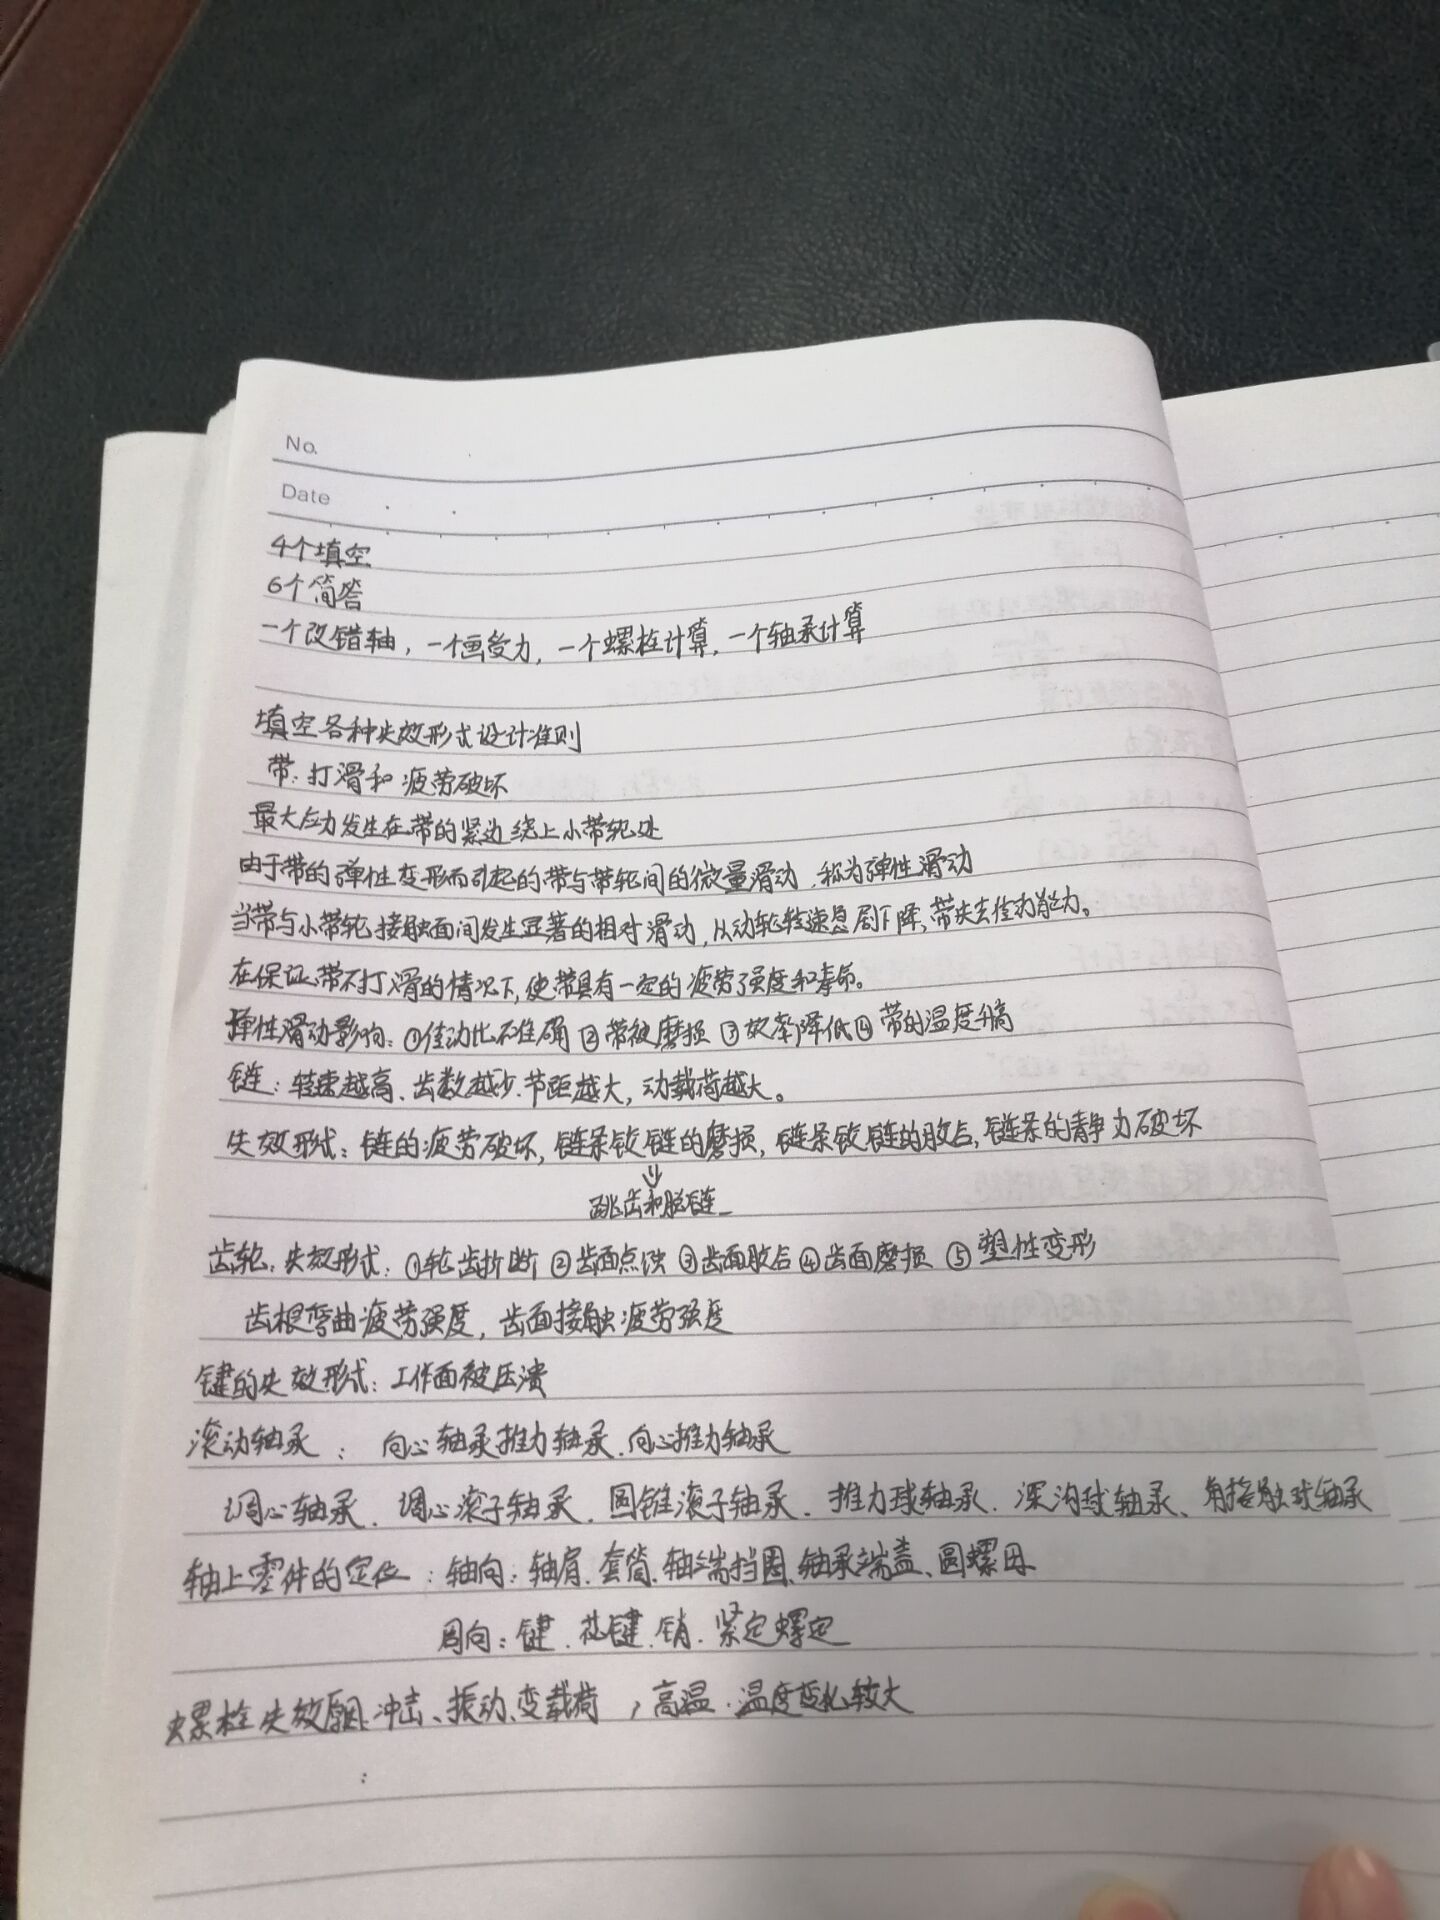 No.
Date
4个填空
6个简答
一个改错轴，一个画受力，一个螺栓计算，一个轴承计算
填空各种失效形式设计准则
带：打滑和疲劳破坏
最大应力发生在带的紧边绕上小带轮处
由于带的弹性变形而引起的带与带轮间的微量滑动，称为弹性滑动
当带与小带轮接触面间发生显著的相对滑动，从动轮转速急剧下降、带失去传动能力。
在保证带不打滑的情况下，使带具有一定的疲劳强度和寿命。
弹性滑动影响：①传动比不准确 ②带被磨损 ③效率降低④带的温度升高
链：转速越高、齿数越少、节距越大，动载荷越大。
失效形式：链的疲劳破坏，链条铰链的磨损，链条铰链的胶合，链条的静力破坏
↓
跳齿和脱链
齿轮：失效形式：①轮齿折断 ②齿面点蚀 ③齿面胶合 ④齿面磨损 ⑤塑性变形
齿根弯曲疲劳强度，齿面接触疲劳强度
键的失效形式：工作面被压溃
滚动轴承：向心轴承推力轴承、向心推力轴承
调心轴承、调心滚子轴承、圆锥滚子轴承、推力球轴承、深沟球轴承、角接触球轴承
轴上零件的定位：轴向：轴肩、套筒、轴端挡圈、轴承端盖、圆螺母
周向：键、花键、销、紧定螺定
螺栓失效原因：冲击、振动、变载荷，高温、温度变化较大